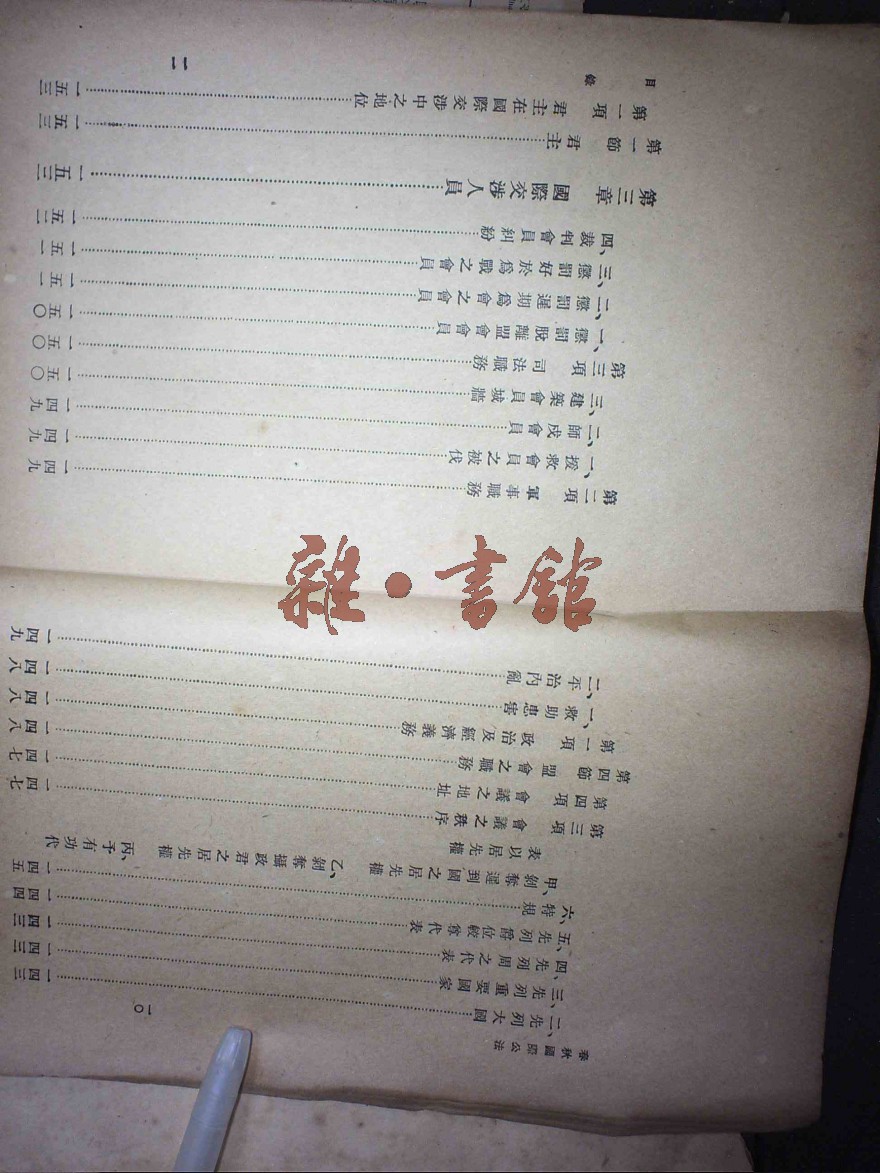 春秋國際公法
一〇
二、先列大國……一四三
三、先列重要國家……一四三
四、先列周之代表……一四三
五、先列爵位較尊代表……一四四
六、特規……一四五
甲、剝奪遲到國之居先權 乙、剝奪攝政君之居先權 丙、予有功代
表以居先權
第三項 會議之秩序……一四七
第四項 會議之地址……一四七
第四節 盟會之職務……一四八
第一項 政治及經濟義務……一四八
一、救助患害……一四八
二、平治內亂……一四九
第二項 軍事職務……一四九
一、援救會員之被伐……一四九
二、師戍會員……一四九
三、建築會員城牆……一五〇
第三項 司法職務……一五〇
一、懲罰脫離盟會會員……一五〇
二、懲罰遲期爲會之會員……一五一
三、懲罰好於爲戰之會員……一五一
四、裁判會員糾紛……一五二
第三章 國際交涉人員……一五三
第一節 君主……一五三
第一項 君主在國際交涉中之地位……一五三
目錄
一一
雜·書館